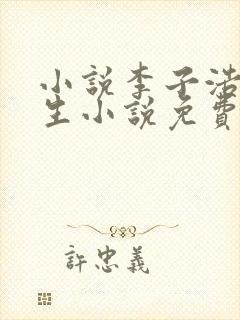 小說李子浩
生小說免費
許忠義